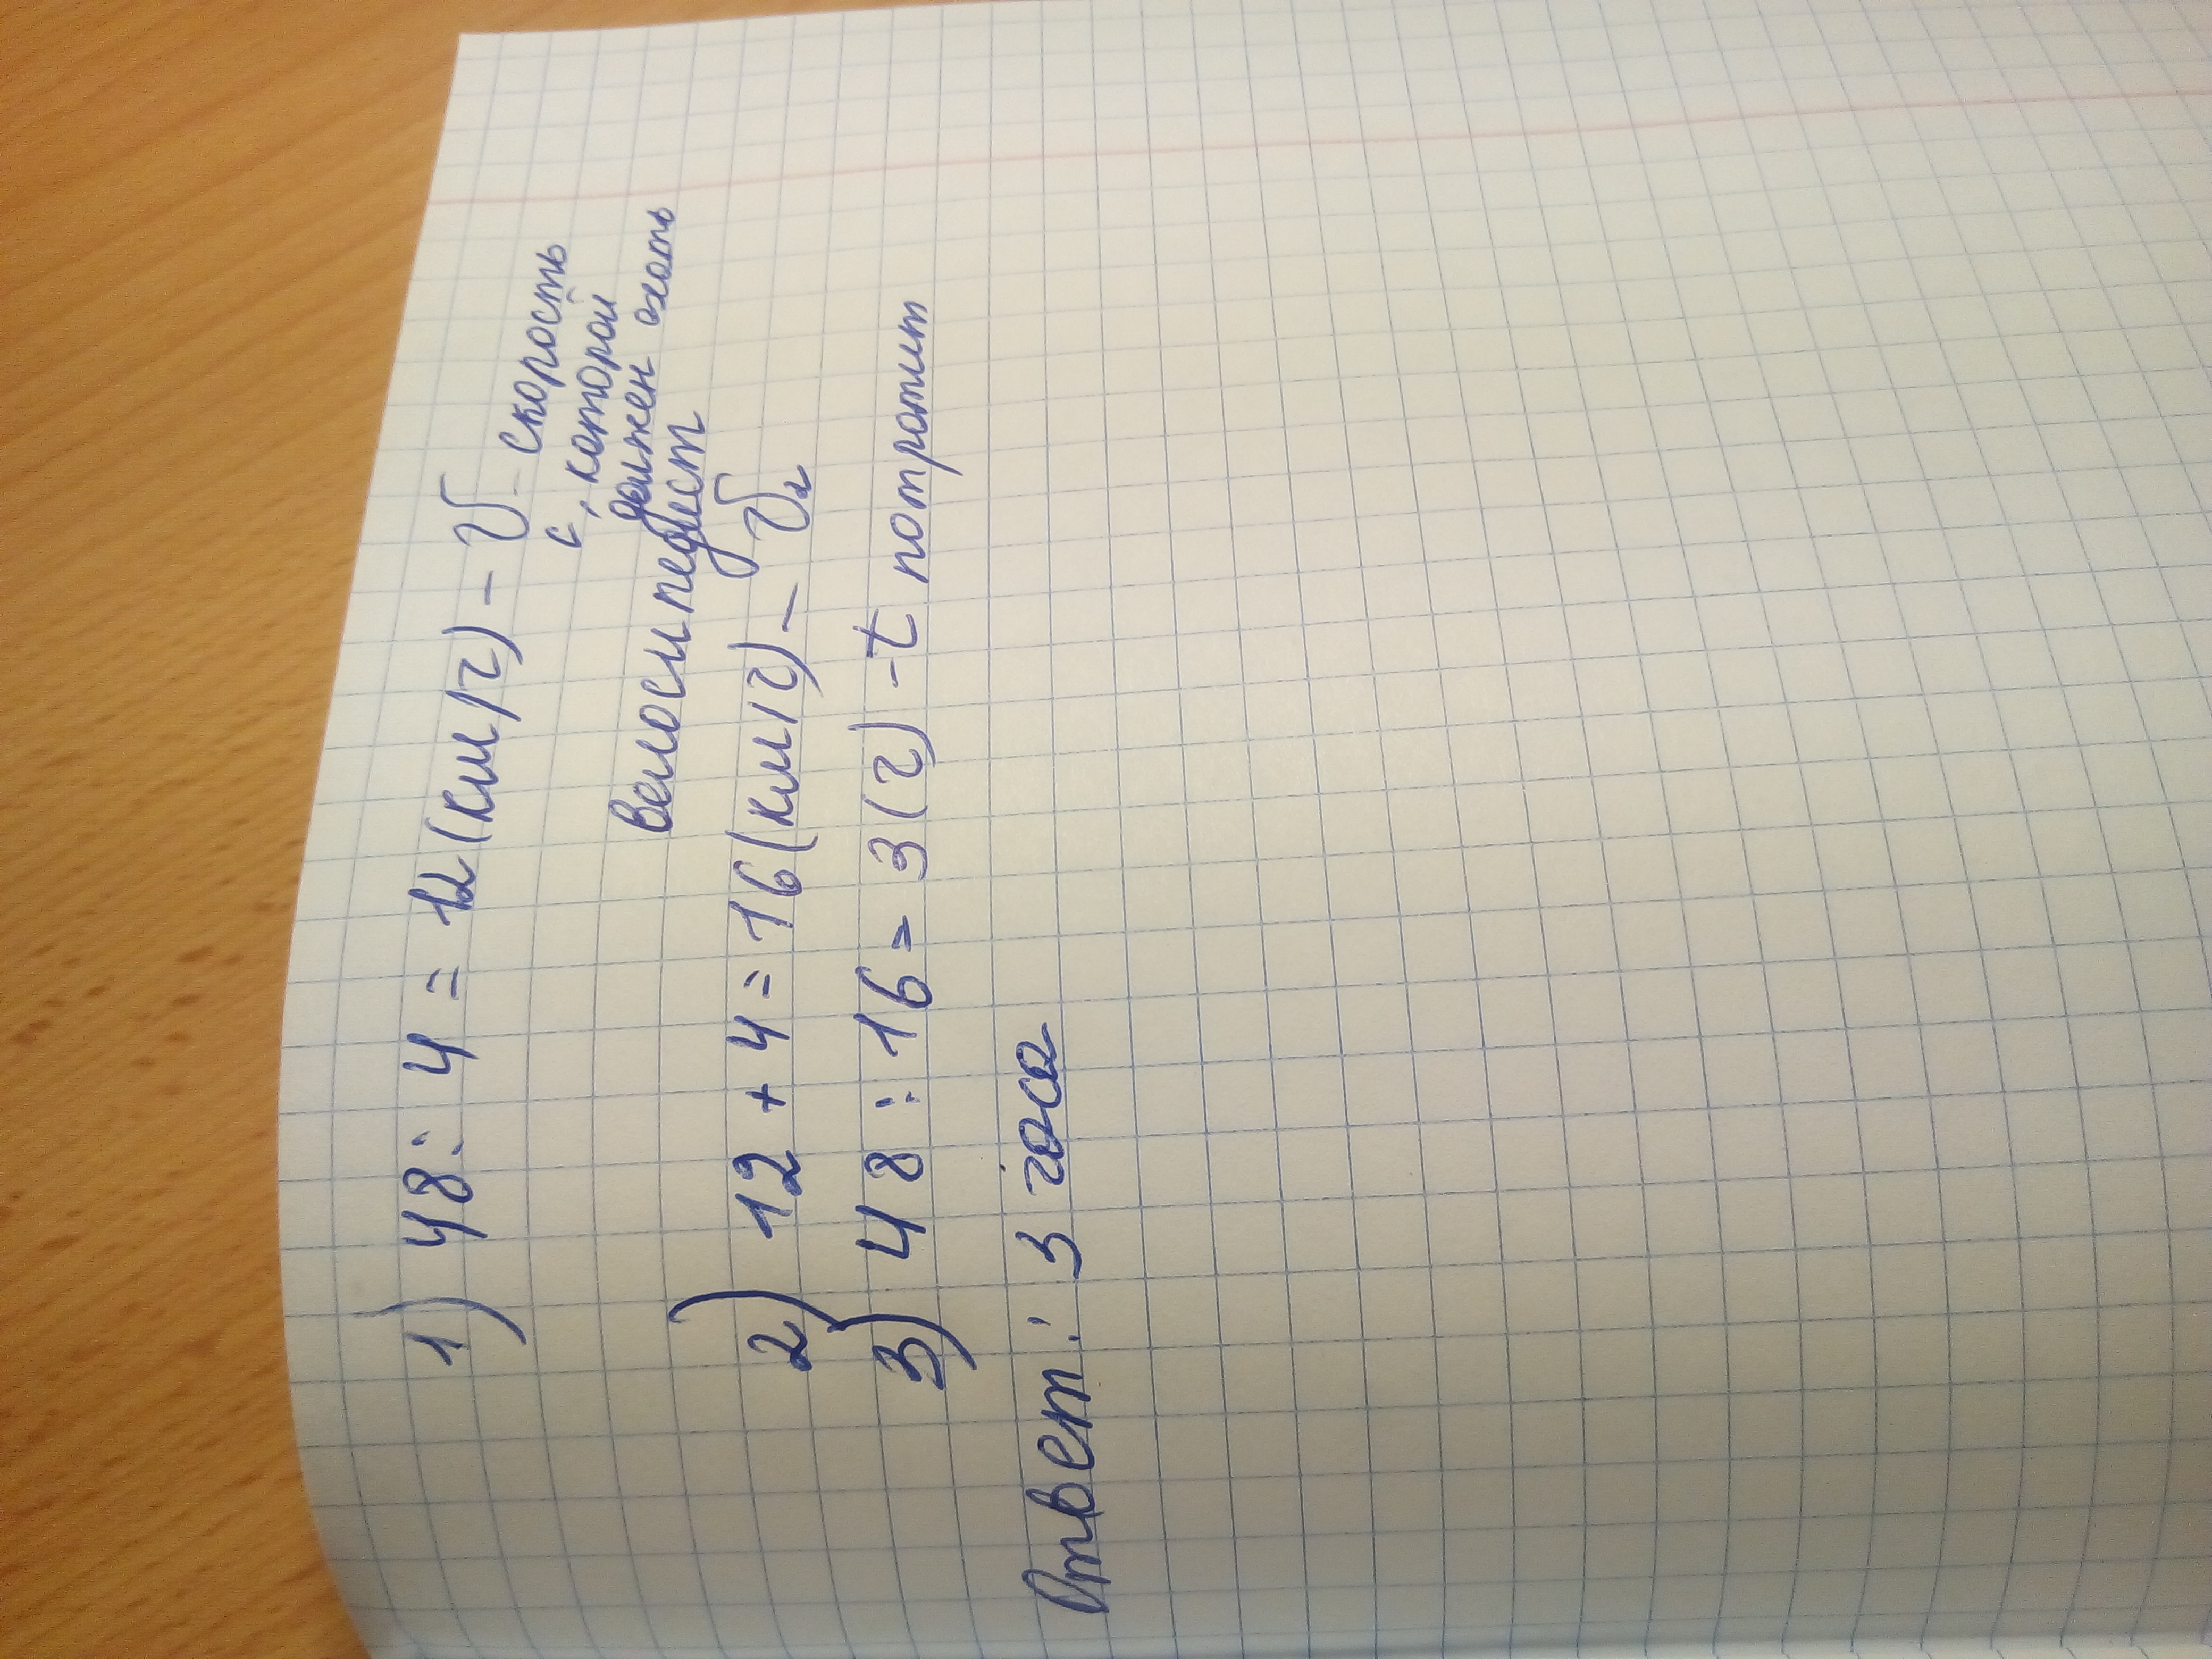 1) 48 : 4 = 12 (км/ч) – V – скорость
с, которой
должен ехать
велосипедист
2) 12 + 4 = 16 (км/ч) – V₂
3) 48 : 16 = 3 (ч) – t потратит
Ответ: 3 часа